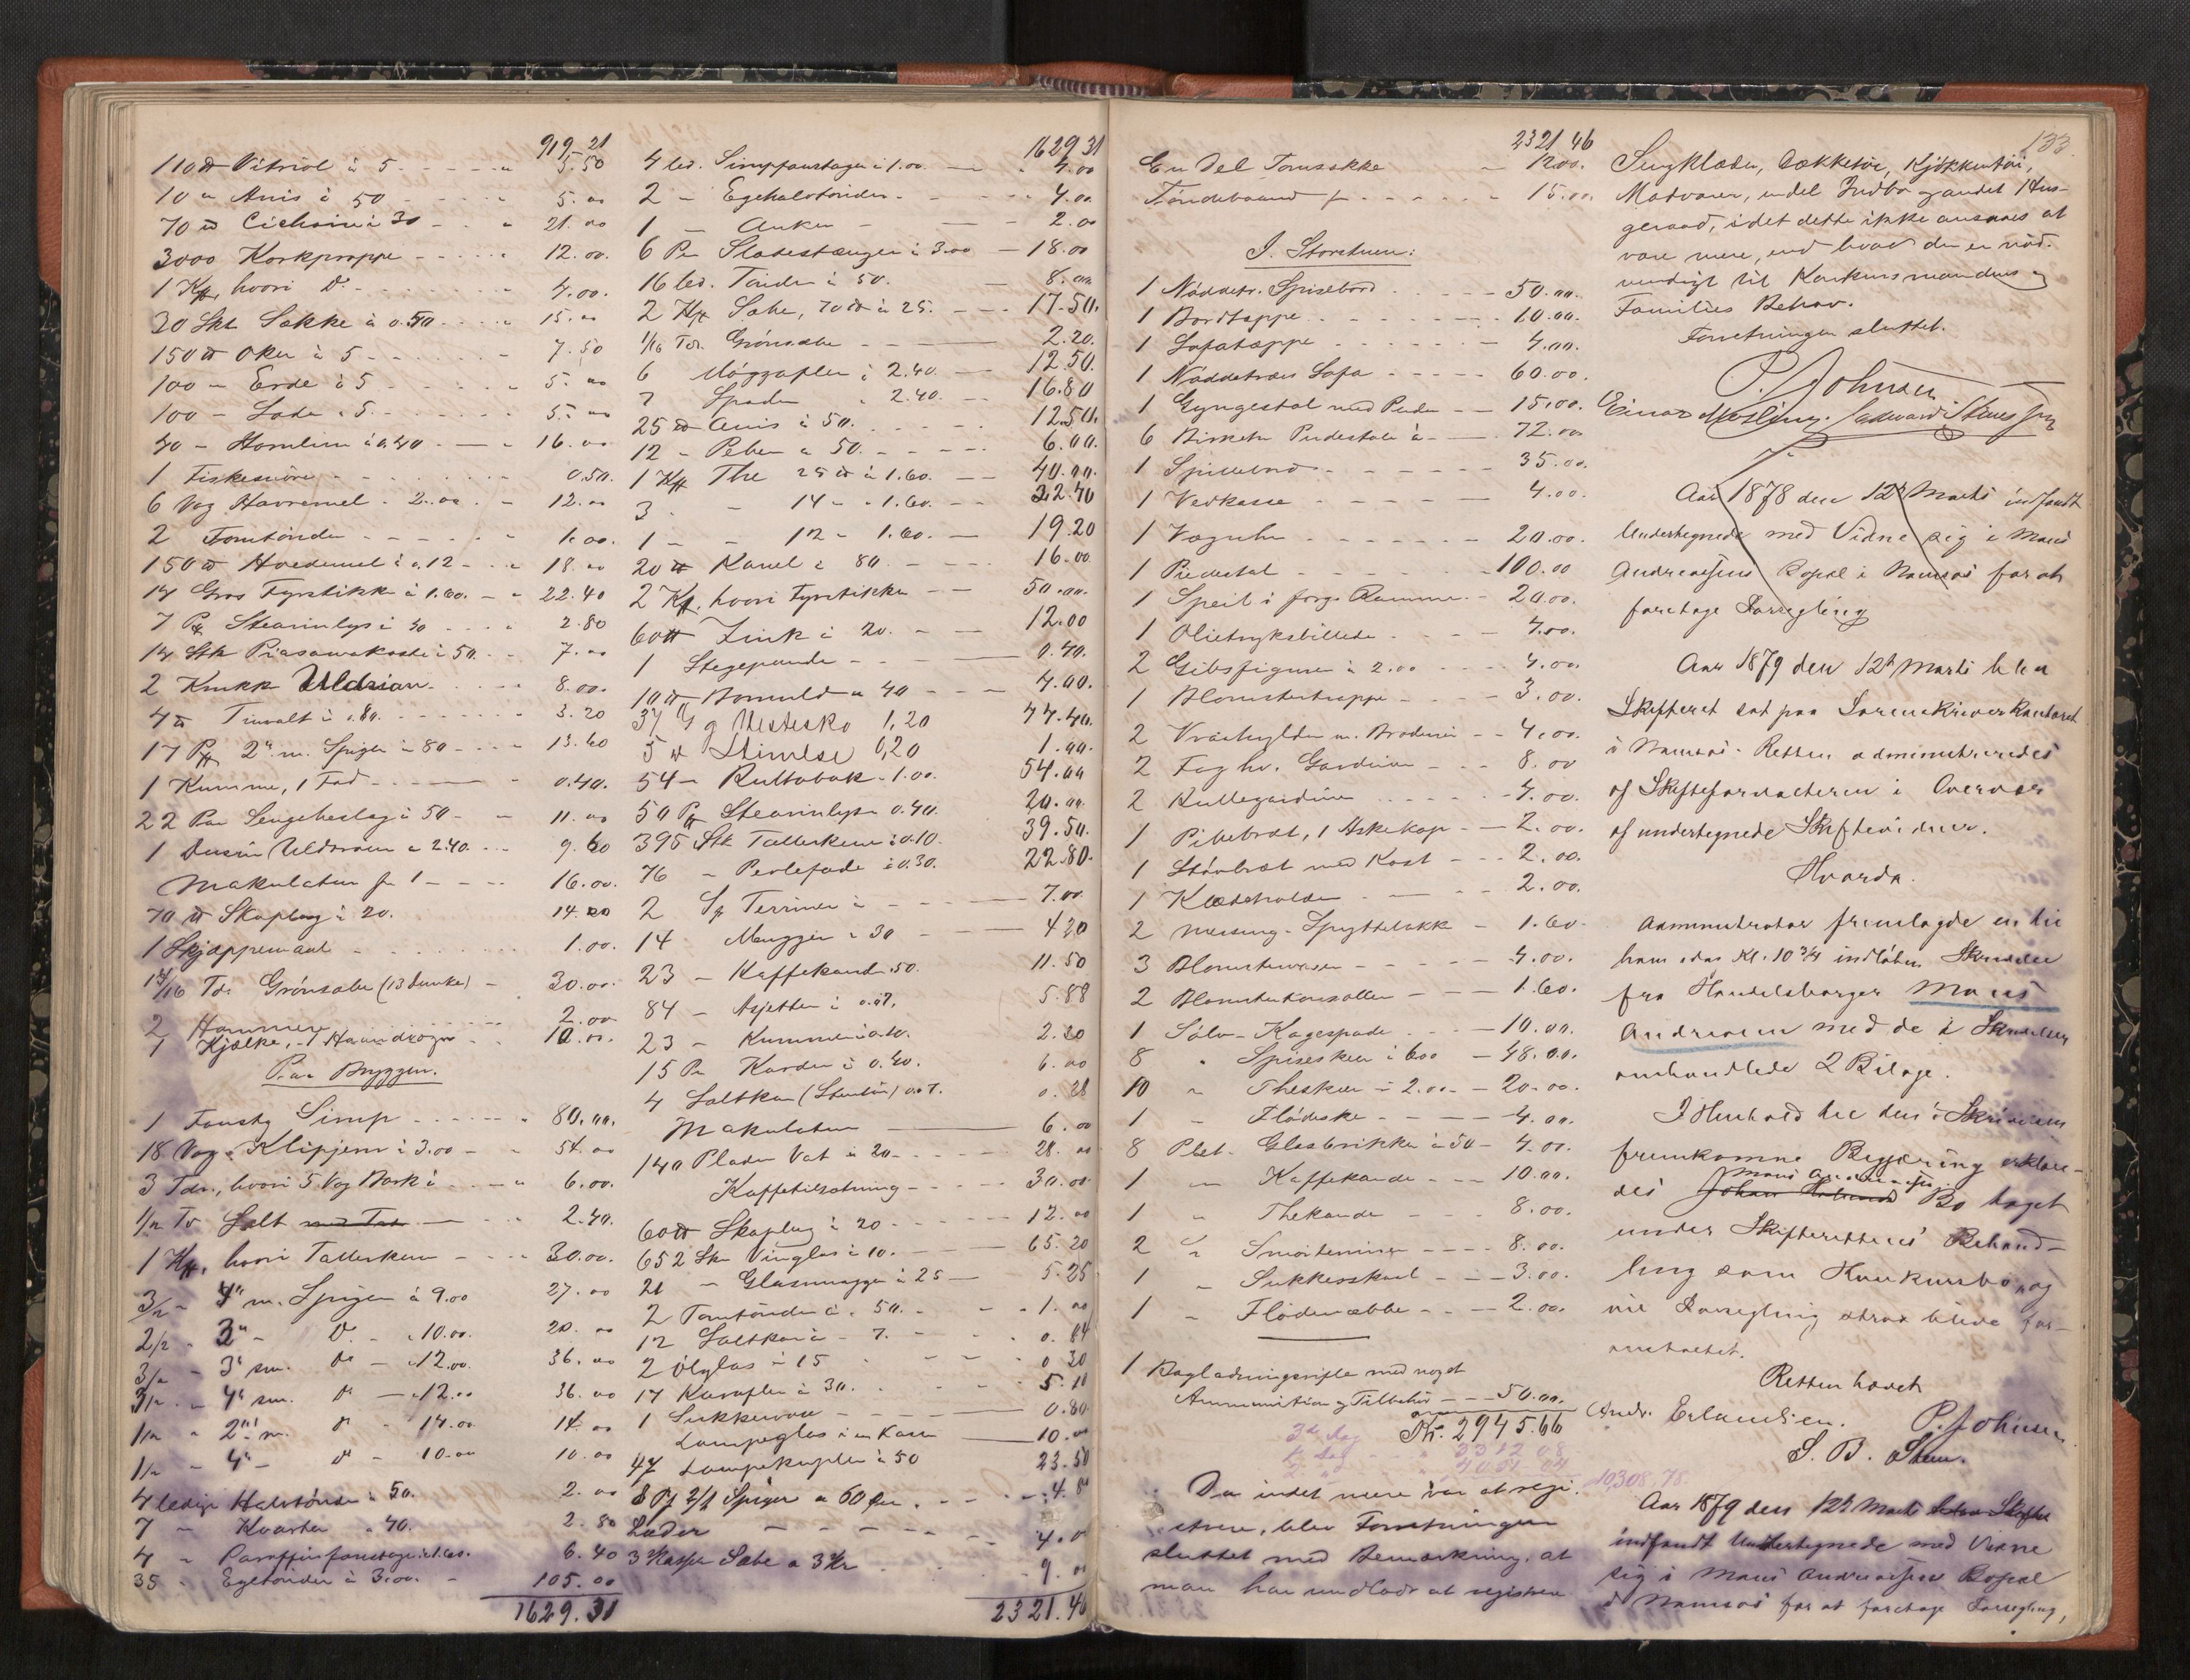 919-21
110 ℔ Vitriol à 5 - - - - " 5.50
10 " Anis à 50 - - - - 5.00
70 ℔ Cichorie à 30 - - " 21.00
3000 Korkproppe - - - - - 12.00.
1 Kss, hvori Do - - - - - 4.00.
30 Stk Sække à 0.50 - - - - 15.00
150 ℔ Oker à 5 - - - - - 7.50
100 " Erde à 5 - - - - - 5.00
100 - Soda à 5 - - - - - 5.00
40 - Hamlin à 0.40 - - - 16.00
1 Fiskesnøre - - - - - 0.50.
6 Vog Havremel à 2.00 - - 12.00
2 Tomtønder - - - - - 1.00.
150 ℔ Hvedemel à 0.12 - - 18.00
14 Gros Fyrstikker à 1.60. - - 22.40
7 Pk Stearinlys à 40 - - - 2.80
14 Stk Piasavakoste à 50 - - 7.00
2 Krukk - - - 8.00.
4 ℔ à 0.80 - - - - - 3.20
17 Pk 2" m. Spiger à 80 - - - 13.60
1 Kumme, 1 Fad - - - - 0.40.
22 Par Sengebeslag à 50 - - 11.00
1 Dusin Uldsnøre à 2.40 - - - 9.60
Makulatur for 1 - - - - 16.00.
70 ℔ Skoplug à 20. 14.00
1 Skjæppemaal - - - - - 1.00.
14/16 Tdr Grønsæbe (13 Dunke) - 30.00.
2 Hammere - - - - - 2.00
1 Kjælke, - 1 Haanddragn - - 10.00.
Paa Bryggen.
1 Fustg Simp - - - - - 80.00.
18 Vog Klipjern à 3.00 - - 54.00
3 Tdr., hvori 5 Vog Bark à - - - 6.00.
1/2 Td Salt med Tdr - - - 2.40.
1 Kss, hvori Tallerkener - - - 30.00.
3/2 - 4" m. Spiger à 9.00 27.00
2/2 - 3" - Do - à 10.00. 20.00
3/2 - 3" sm. Do - à 12.00. 36.00
3/2 - 4" sm. Do - à 12.00 36.00
1/2 - 2" m. Do - 14.00 14.00
1/2 - 4" - Do - 10.00 10.00
4 ledige Halvtønder à 50. 2.00
7 - Kvarter à 40. 2.80
4 - Paraffinfustage à 1.60. 6.40
35 - Egetønder à 3.00. - 105.00
1629.31
1629 31
4 led. Simpfaustager à 1.00. - 4.00
2 - Egehalvtønder - - - 4.00.
1 - Anker - - - 2.00
6 Par Slædestænger à 3.00 - 18.00
16 led. Tønder à 50. - 8.00
2 Kss Sæbe, 70 ℔ à 25. - - - 17.50.
1/16 Tdr. Grønsæbe - - - 2.20.
6 Møggafler à 2.40. - - 12.50.
7 Spader à 2.40. - - 16.80
25 ℔ Anis à 50. - - - - 12.50.
12 - Peber à 50. - - - - 6.00.
1 Kss The 25 ℔ à 1.60. - - 40.00.
3 - - 14 - - 1.60. - - 22.40
1 - - 12 - 1.60. - - 19.20
20 ℔ Kanel à 80 - - - 16.00
2 Kss, hvori Fyrstikker - - 50.00.
60 ℔ Zink à 20. - - - 12.00
1 Stegepande - - - - 0.40.
10 ℔ Bomuld à 40 - - - 4.00.
37 Vestesko 1,20 44.40.
5 ℔ Stivelse 0,20 1.00.
54 - Rultobak - 1.00. 54.00
50 Pk Stearinlys 0.40. 20.00.
395 Stk Tallerkener à 0.10. 39.50.
76 - Perlefade à 0.30. 22.80.
2 Stk Terriner à - - - 7.00
14 Mugger à 30 - - - 4 20
23 - Kaffekander 50. 11.50
84 - Asjetter à 0.07. 5.88
23 - Kummer à 0.10. 2.30
15 Par Karder à 0.40. 6.00
4 Saltkar (Stentøi) 0.07. 0.28
Makulatur - - - 6.00
140 Plader Vat à 20 - - - 28.00
Kaffetilsætning - - - 30.00
60 ℔ Skoplug à 20 - - - - 12.00
652 Stk Vinglas à 10. - - - 65.20
21 - Glasmugger à 25 - 5.25
2 Tomtønder à 50. - - 1.00
12 Saltkar à - 7. - - 0.84
2 Ølglas à 15 - - 0 30
17 Karafler à 30. - - 5.10
1 Sukkervase - - - 0.80
Lampeglas i en Kasse - 10.00
47 Lampekupler à 50 23.50
8 Pk 2/1 Spiger à 60 Øre - - - 4.80
Læder - - - - - - 4.00
3 Kasser Sæbe a 3 Kr - - - 9.00
2321.46
2321 46
En Del Tomsække - 12.00.
Tøndebaand for - - - - - 15.00.
I. Storstuen:
1 Nøddetr. Spisebord - - - - 50.00.
1 Bordtæppe - - - - - - 10.00.
1 Sofatæppe - - - - - - 4.00.
1 Nøddetræs Sofa - - - - - 60.00.
1 Gyngestol med Puder - - 15.00.
6 Birketr Pudestole à - - 72.00
1 Spillebord - - - - - - 35.00.
1 Vedkasse - - - - - - 4.00.
1 Væguhr - - - - - - 20.00.
1 Piedestal - - - - - - 100.00
1 Speil i forg. Ramme - - 20.00.
1 Olietryksbillede - - - - 4.00.
2 Gibsfigurer à 2.00 - - - - 4.00.
1 Blomstertrappe - - - - 3.00.
2 Vraahylder m. Broderi - - 4.00.
2 Fag hv. Gardiner - - - 8.00
2 Rullegardiner - - - - - 4.00.
1 Pibebræt, 1 Askekop - - 2.00.
1 Støvbræt med Kost - - - 2.00.
1 Klædeholder - - - - 2.00.
2 Messing-Spyttebakk - 1.60.
3 Blomstervaser - - - - - 4.00.
2 Blomsterkonsoller - - - 1.60.
1 Sølv-Kagespade - - - 10.00.
8 " Spiseskeer à 6.00 - 48.00.
10 " Theskeer à 2.00 - - 20.00.
1 " Flødeske - - - - 4.00.
8 Plet- Glasbrikker à 50 - 4.00.
1 " Kaffekande - - - 10.00.
1 " Thekande - - - 8.00.
2 " Smørterriner - - - - 8.00.
1 " Sukkerskaal - - - 3.00.
1 " Flødenæbbe - - - 2.00.
1 Bagladningsrifle med noget
Ammunition & Tilbehør - - 50.00.
Kr. 2945.66
3die dag 3312 08
4 dag 4051 04
10,308.78.
Da intet mere var at regi-
strere, blev Forretningen
sluttet med Bemærkning, at
man har undladt at registrere
133.
Sengklæder, Dækketøi, Kjøkkentøi,
Madvarer, endel Indbo og andet Hus-
geraad, idet dette ikke ansaaes at
være mere, end hvad der er nød-
vendigt til Konkursmandens og
Families Behov.
Forretningen sluttet.
P. Johnsen
Einar Møsling.
Aar 1878 den 12te Marts indfandt
Undertegnede med Vidne sig i Mons
Andreassens Bopæl i Namsos for at
foretage Forsegling
Aar 1879 den 12te Marts blev
Skifteret sat paa Sorenskriverkontoret
i Namsos. Retten administreredes
af Skifteforvalteren i Overvær
af undertegnede Skiftevidner.
Hvorda.
Administrator fremlagde en til
ham idag Kl. 10 3/4 indløben Skrivelse
fra Handelsborger Mons
Andreassen med de i Skrivelsen
omhandlede 2 Bilage.
I Henhold til den i Skrivelsen
fremkomne Begjæring erklære-
des Mons Andreassens Bo taget
under Skifterettens Behand-
ling som Konkursbo, og
vil Forsegling strax blive for-
anstaltet.
Retten hævet
Andr. Erlandsen. P. Johnsen
S. B. Steen.
Aar 1879 den 12te Marts blev Skifte
indfandt Undertegnede med Vidne
sig i Mons Andreassens Bopæl
i Namsos for at foretage Forsegling,